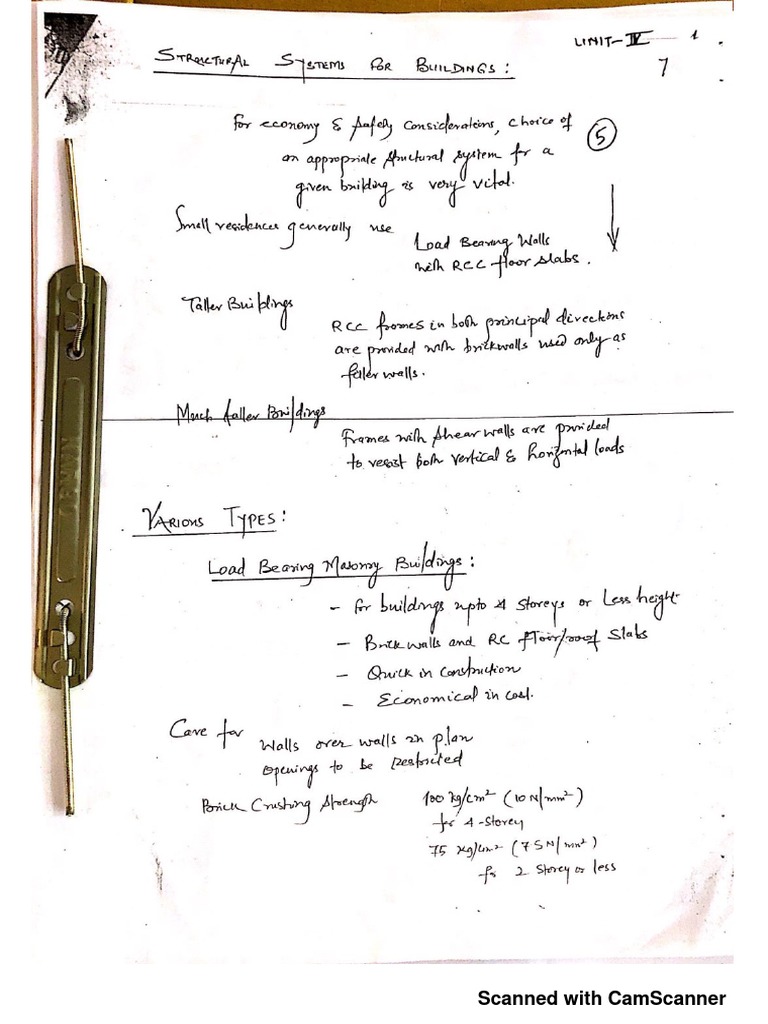 UNIT-IV 1
STRUCTURAL SYSTEMS FOR BUILDINGS:
7
For economy & safety considerations, choice of
an appropriate structural system for a
given building is very vital.
5
Small residences generally use
Load Bearing Walls
with RCC floor slabs.
Taller Buildings
RCC frames in both principal directions
are provided with brickwalls used only as
filler walls.
Much taller Buildings
Frames with shear walls are provided
to resist both vertical & horizontal loads
VARIOUS TYPES:
Load Bearing Masonry Buildings:
- for buildings upto 4 storeys or less height
- Brick walls and RC floor/roof slabs
- Quick in construction
- Economical in cost.
Care for
walls over walls in plan
openings to be restricted
Brick Crushing Strength
100 kg/cm² (10 N/mm²)
for 4-storey
75 kg/cm² (75 N/mm²)
for 2 storey or less
Scanned with CamScanner